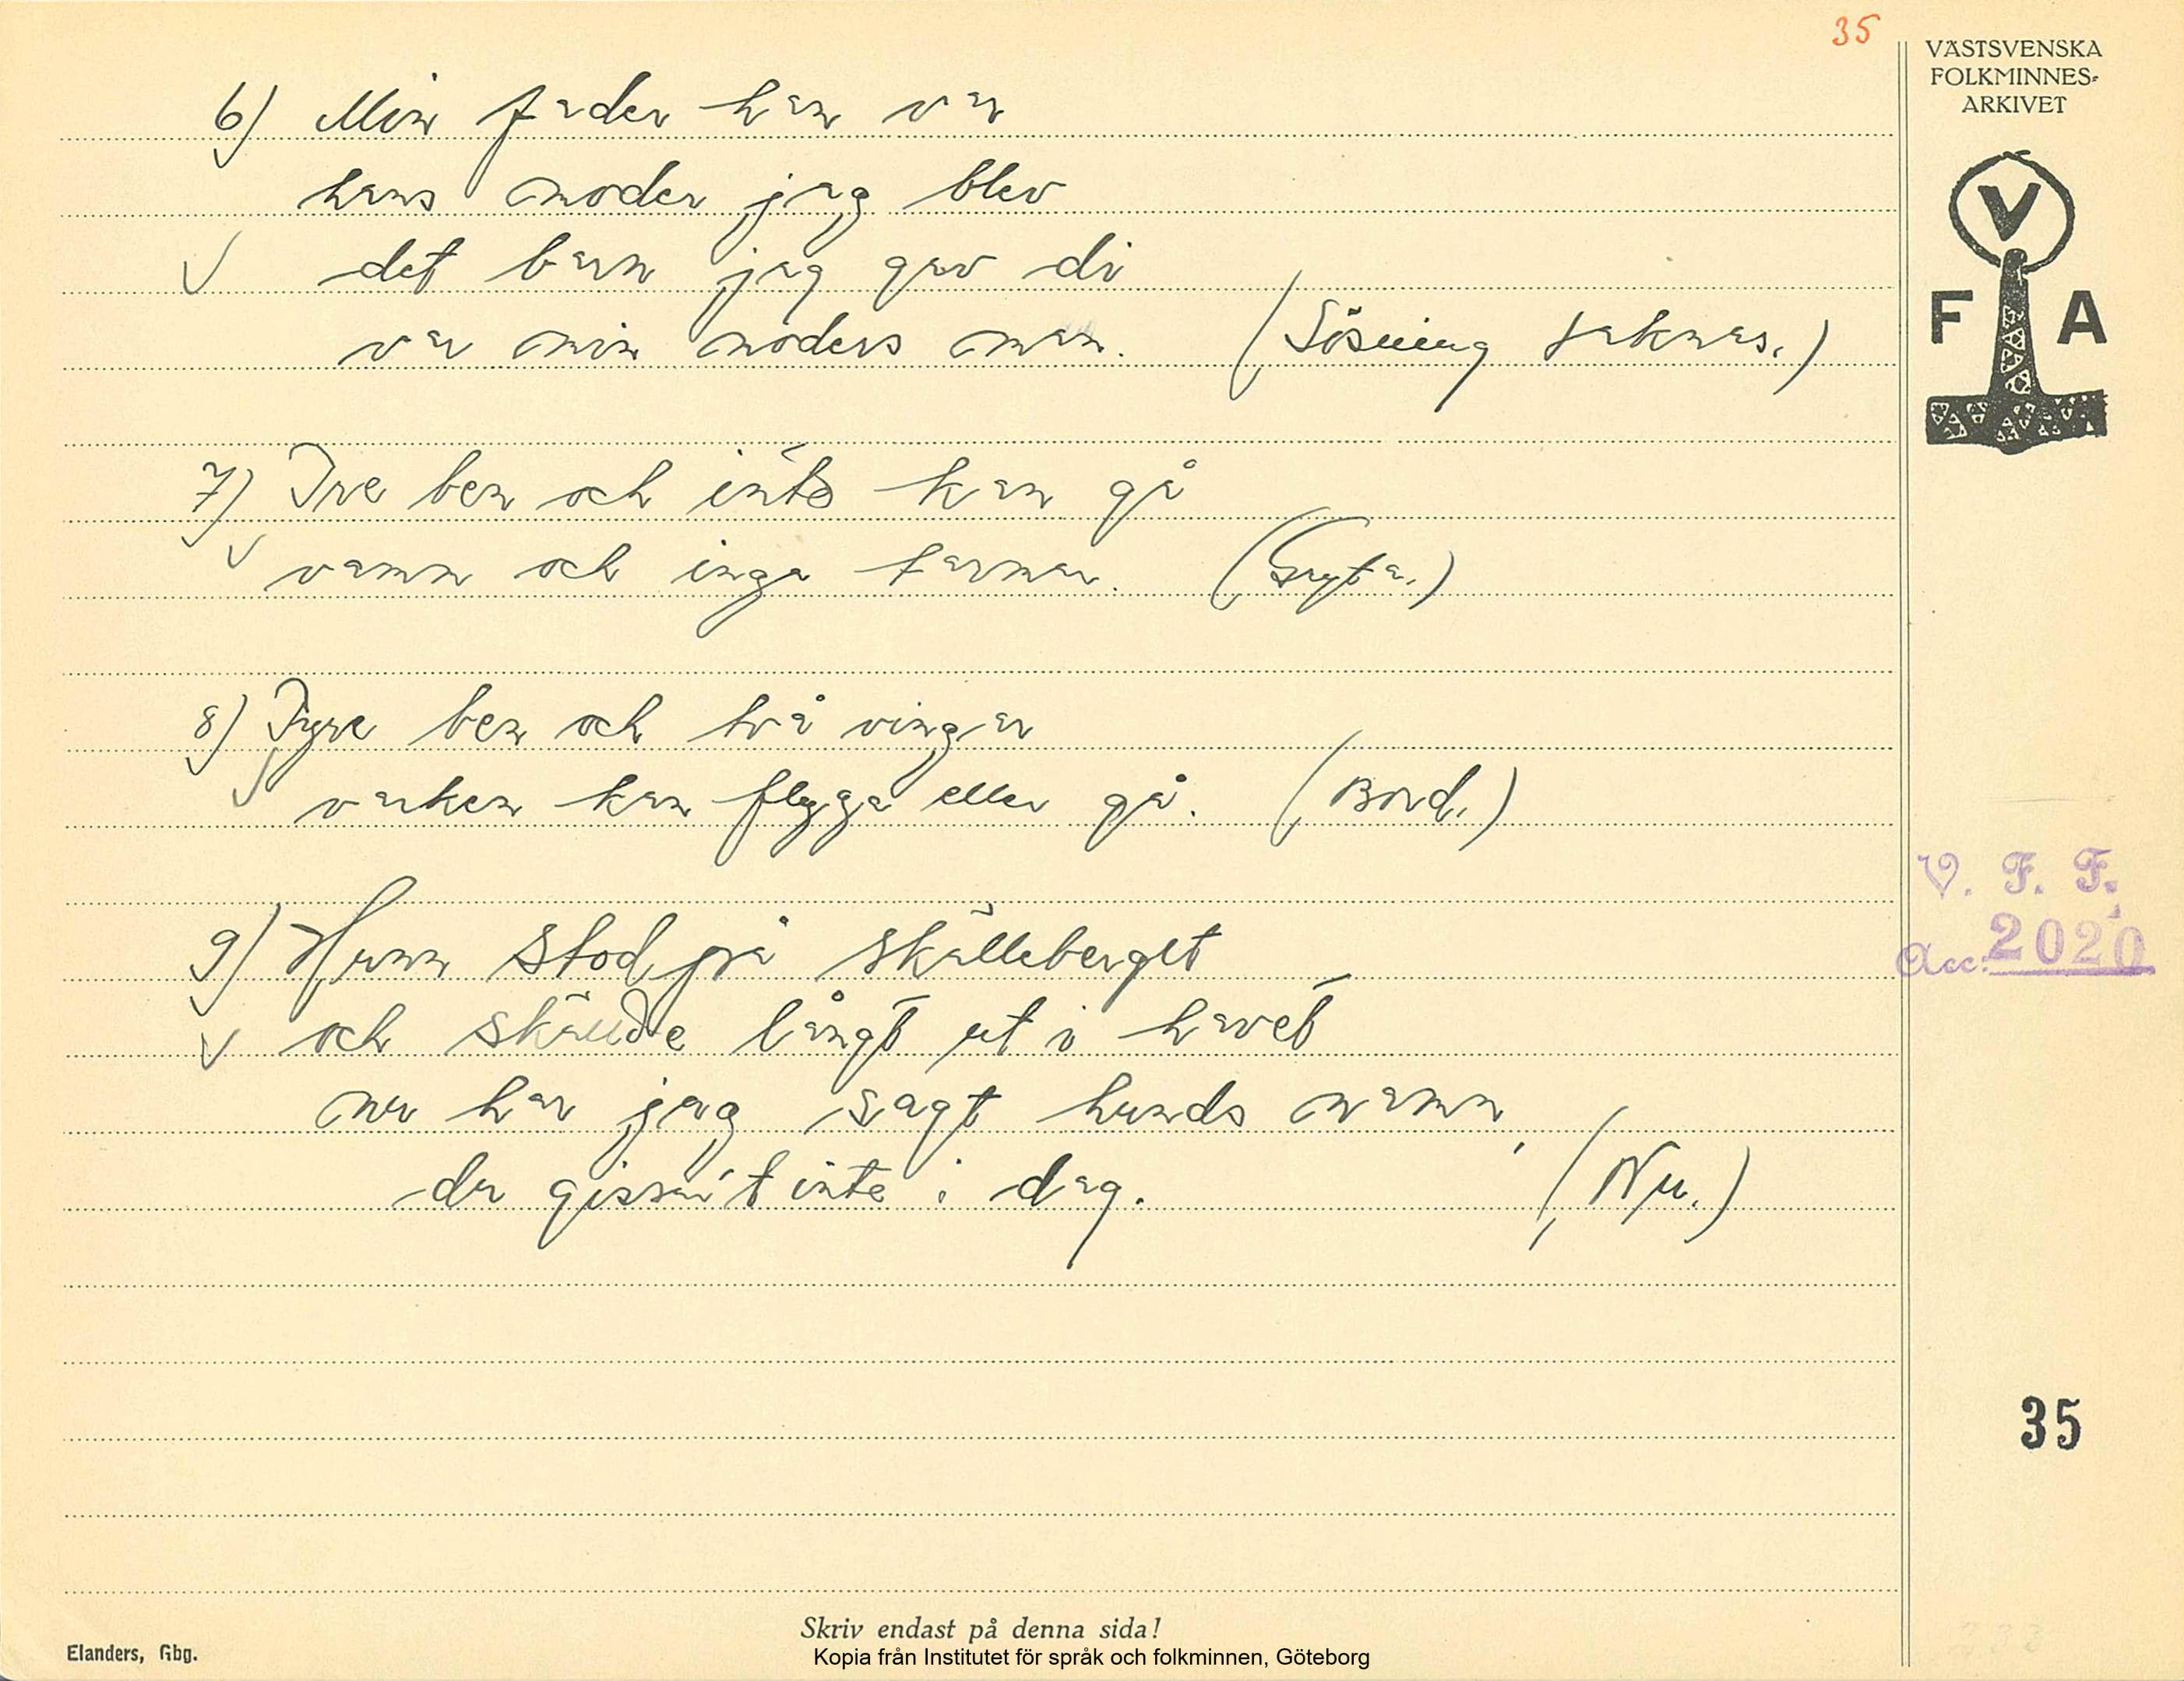 35
VÄSTSVENSKA
FOLKMINNES-
ARKIVET
V
F A
6) Min fader han var
hans moder jag blev
det barn jag gav di
var min moders man. (Lösning saknas.)
7) Tre ben och inte kan gå
vamm och inga tarmar. (Gryta.)
8) Fyra ben och två vingar
varken kan flyga eller gå. (Bord.)
9) Hunn stod på skälleberget
och skällde långt ut i havet
nu har jag sagt hunds namn,
du gissar't inte i dag. (Nu.)
V. F. F.
Acc. 2020
35
Skriv endast på denna sida!
Elanders, Gbg.
Kopia från Institutet för språk och folkminnen, Göteborg